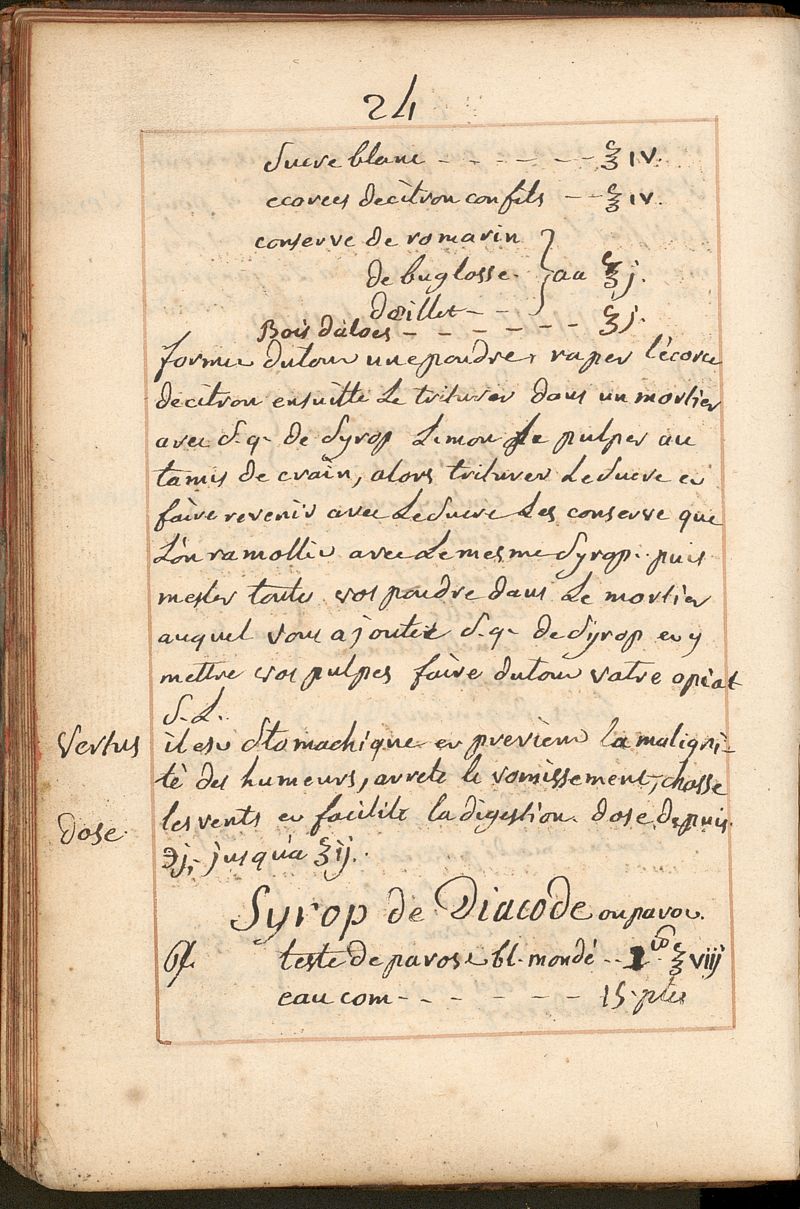 24
Sucre blanc - - - - - - ℥ iv.
ecorces de citron confits - - ℥ iv.
conserve de romarin
de buglosse } aa ℥ j.
d'œillet - -
Bois d'aloes - - - - - - ℥ j.
former du tour une poudre, raper l'écorce
de citron ensuitte Le triturer dans un mortier
avec S.q. de Syrop Limon Le pulper au
tamis de crain, alors triturer Le Sucre et
faire revenir avec Le Sucre Les conserve que
L'on ramollit avec Le mesme Syrop. puis
mesler toute vos poudre dans Le mortier
auquel vous ajoutez S.q. de Syrop et y
mettre vos pulpes faire du tour vatre opiat
S.L.
Vertus il est Stomachique et previent la maligni-
té des humeurs, arrete le vomissement, chasse
les vents et facilite la digestion. dose Depuis
Dose. ℈j, jusqu'a ℥ij.
Syrop de Diacode ou pavot.
℞. teste de pavos bl. mondé - - 1 lb ℥ viij
eau com - - - - - - 15 ptes